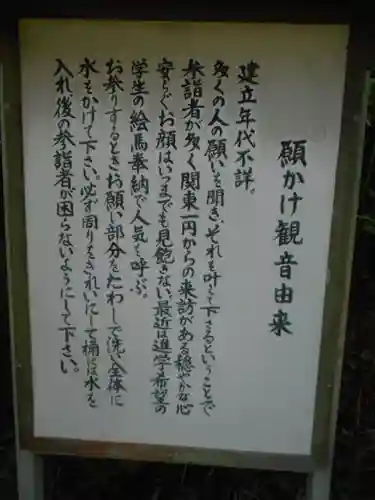 願かけ観音由来
建立年代不詳。
多くの人の願いを聞き、それを叶えて下さるということで
参詣者が多く関東一円からの来訪がある穏やかな心
安らぐお顔はいつまでも見飽きない最近は進学希望の
学生の絵馬奉納で人気を呼ぶ。
お参りするときお願い部分をたわしで洗い全体に
水をかけて下さい。必ず周りをきれいにして桶には水を
入れ後の参詣者が困らないようにして下さい。